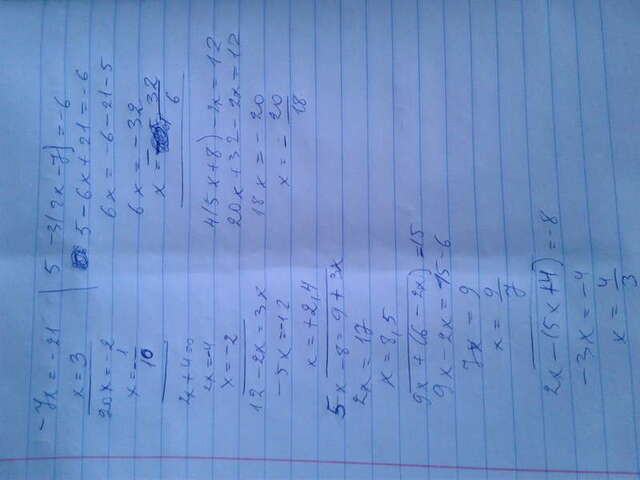 -7x = -21
x = 3
20x = -2
x = -1/10
2x + 4 = 0
2x = -4
x = -2
12 - 2x = 3x
-5x = -12
x = +2,4
5x - 8 = 9 + 3x
2x = 17
x = 8,5
9x + (6 - 2x) = 15
9x - 2x = 15 - 6
7x = 9
x = 9/7
2x - (5x + 4) = -8
-3x = -4
x = 4/3
5 - 3(2x - 7) = -6
5 - 6x + 21 = -6
6x = -6 - 21 - 5
6x = -32
x = - 32/6
4(5x + 8) - 2x = 12
20x + 32 - 2x = 12
18x = -20
x = - 20/18